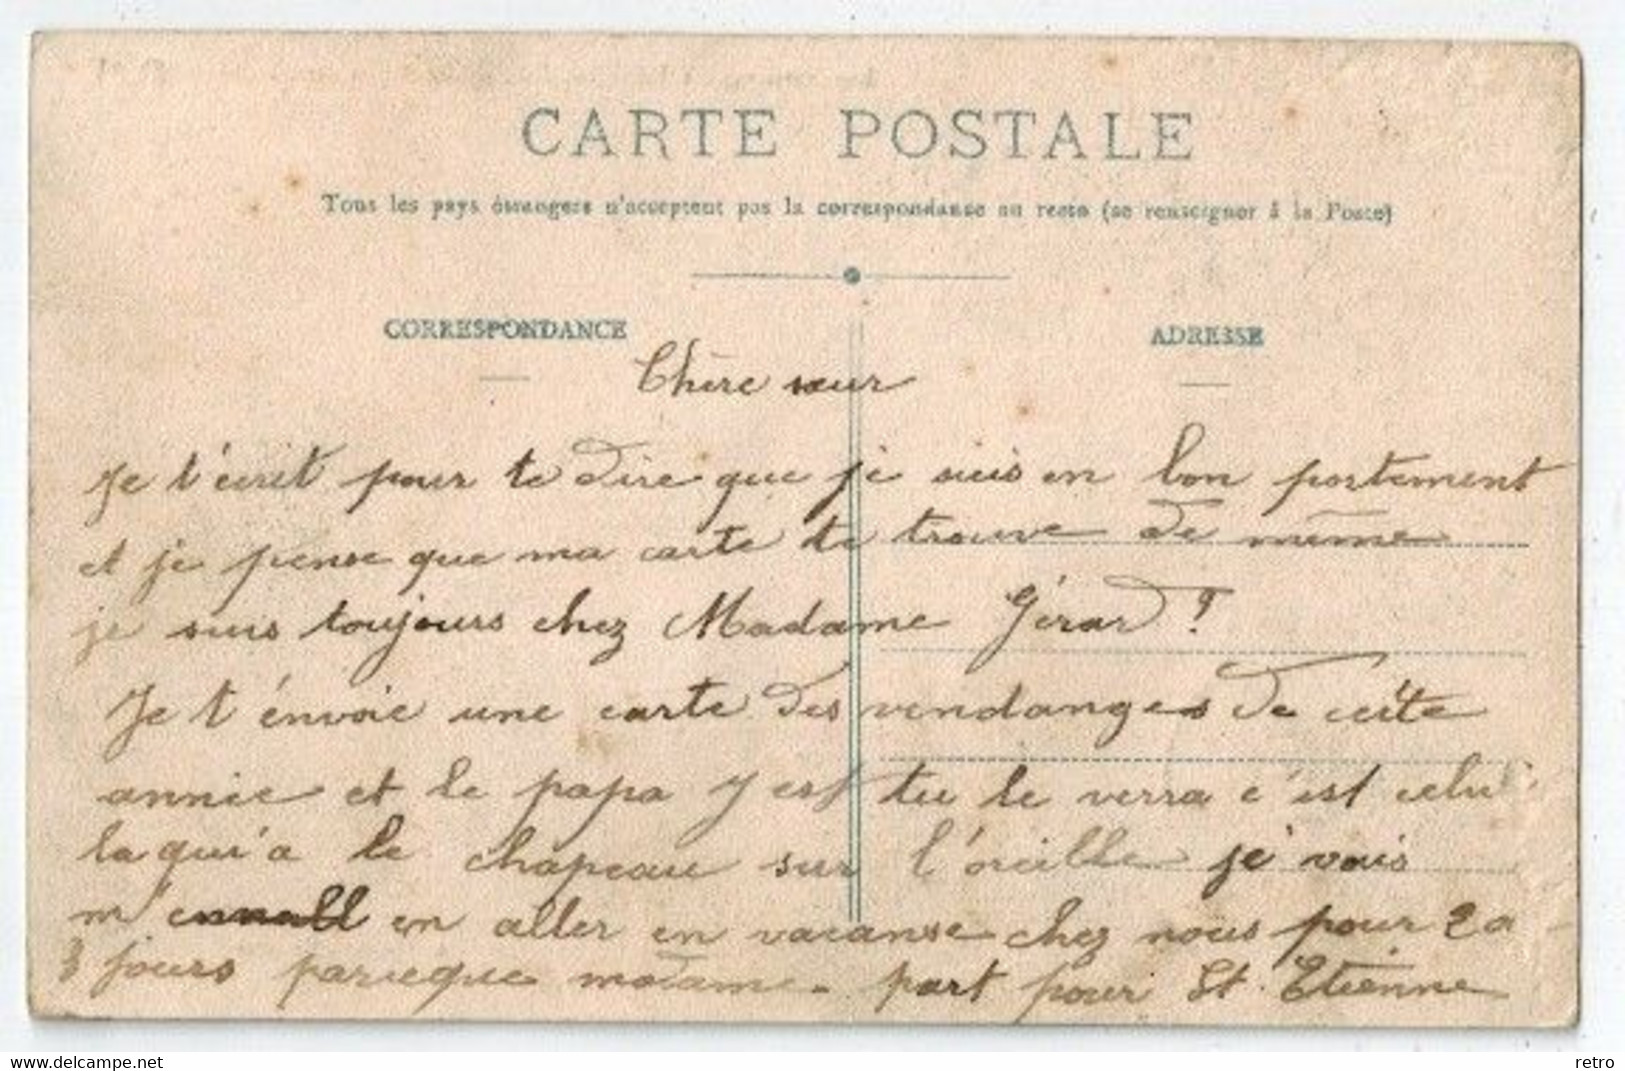 CARTE POSTALE
Tous les pays étrangers n'acceptent pas la correspondance au recto (se renseigner à la Poste)
CORRESPONDANCE
ADRESSE
Chère sœur
Je t'écrit pour te dire que je suis en bon portement
et je pense que ma carte te trouve de même
je suis toujours chez Madame Gérard
Je t'énvoie une carte des vendanges de cette
annie et le papa y est tu le verra c'est celui
la qui'a le chapeau sur l'oreille je vais
m' en aller en vacanse chez nous pour 2 a
3 jours parceque madame. part pour St. Etienne
www.delcampe.net
retro